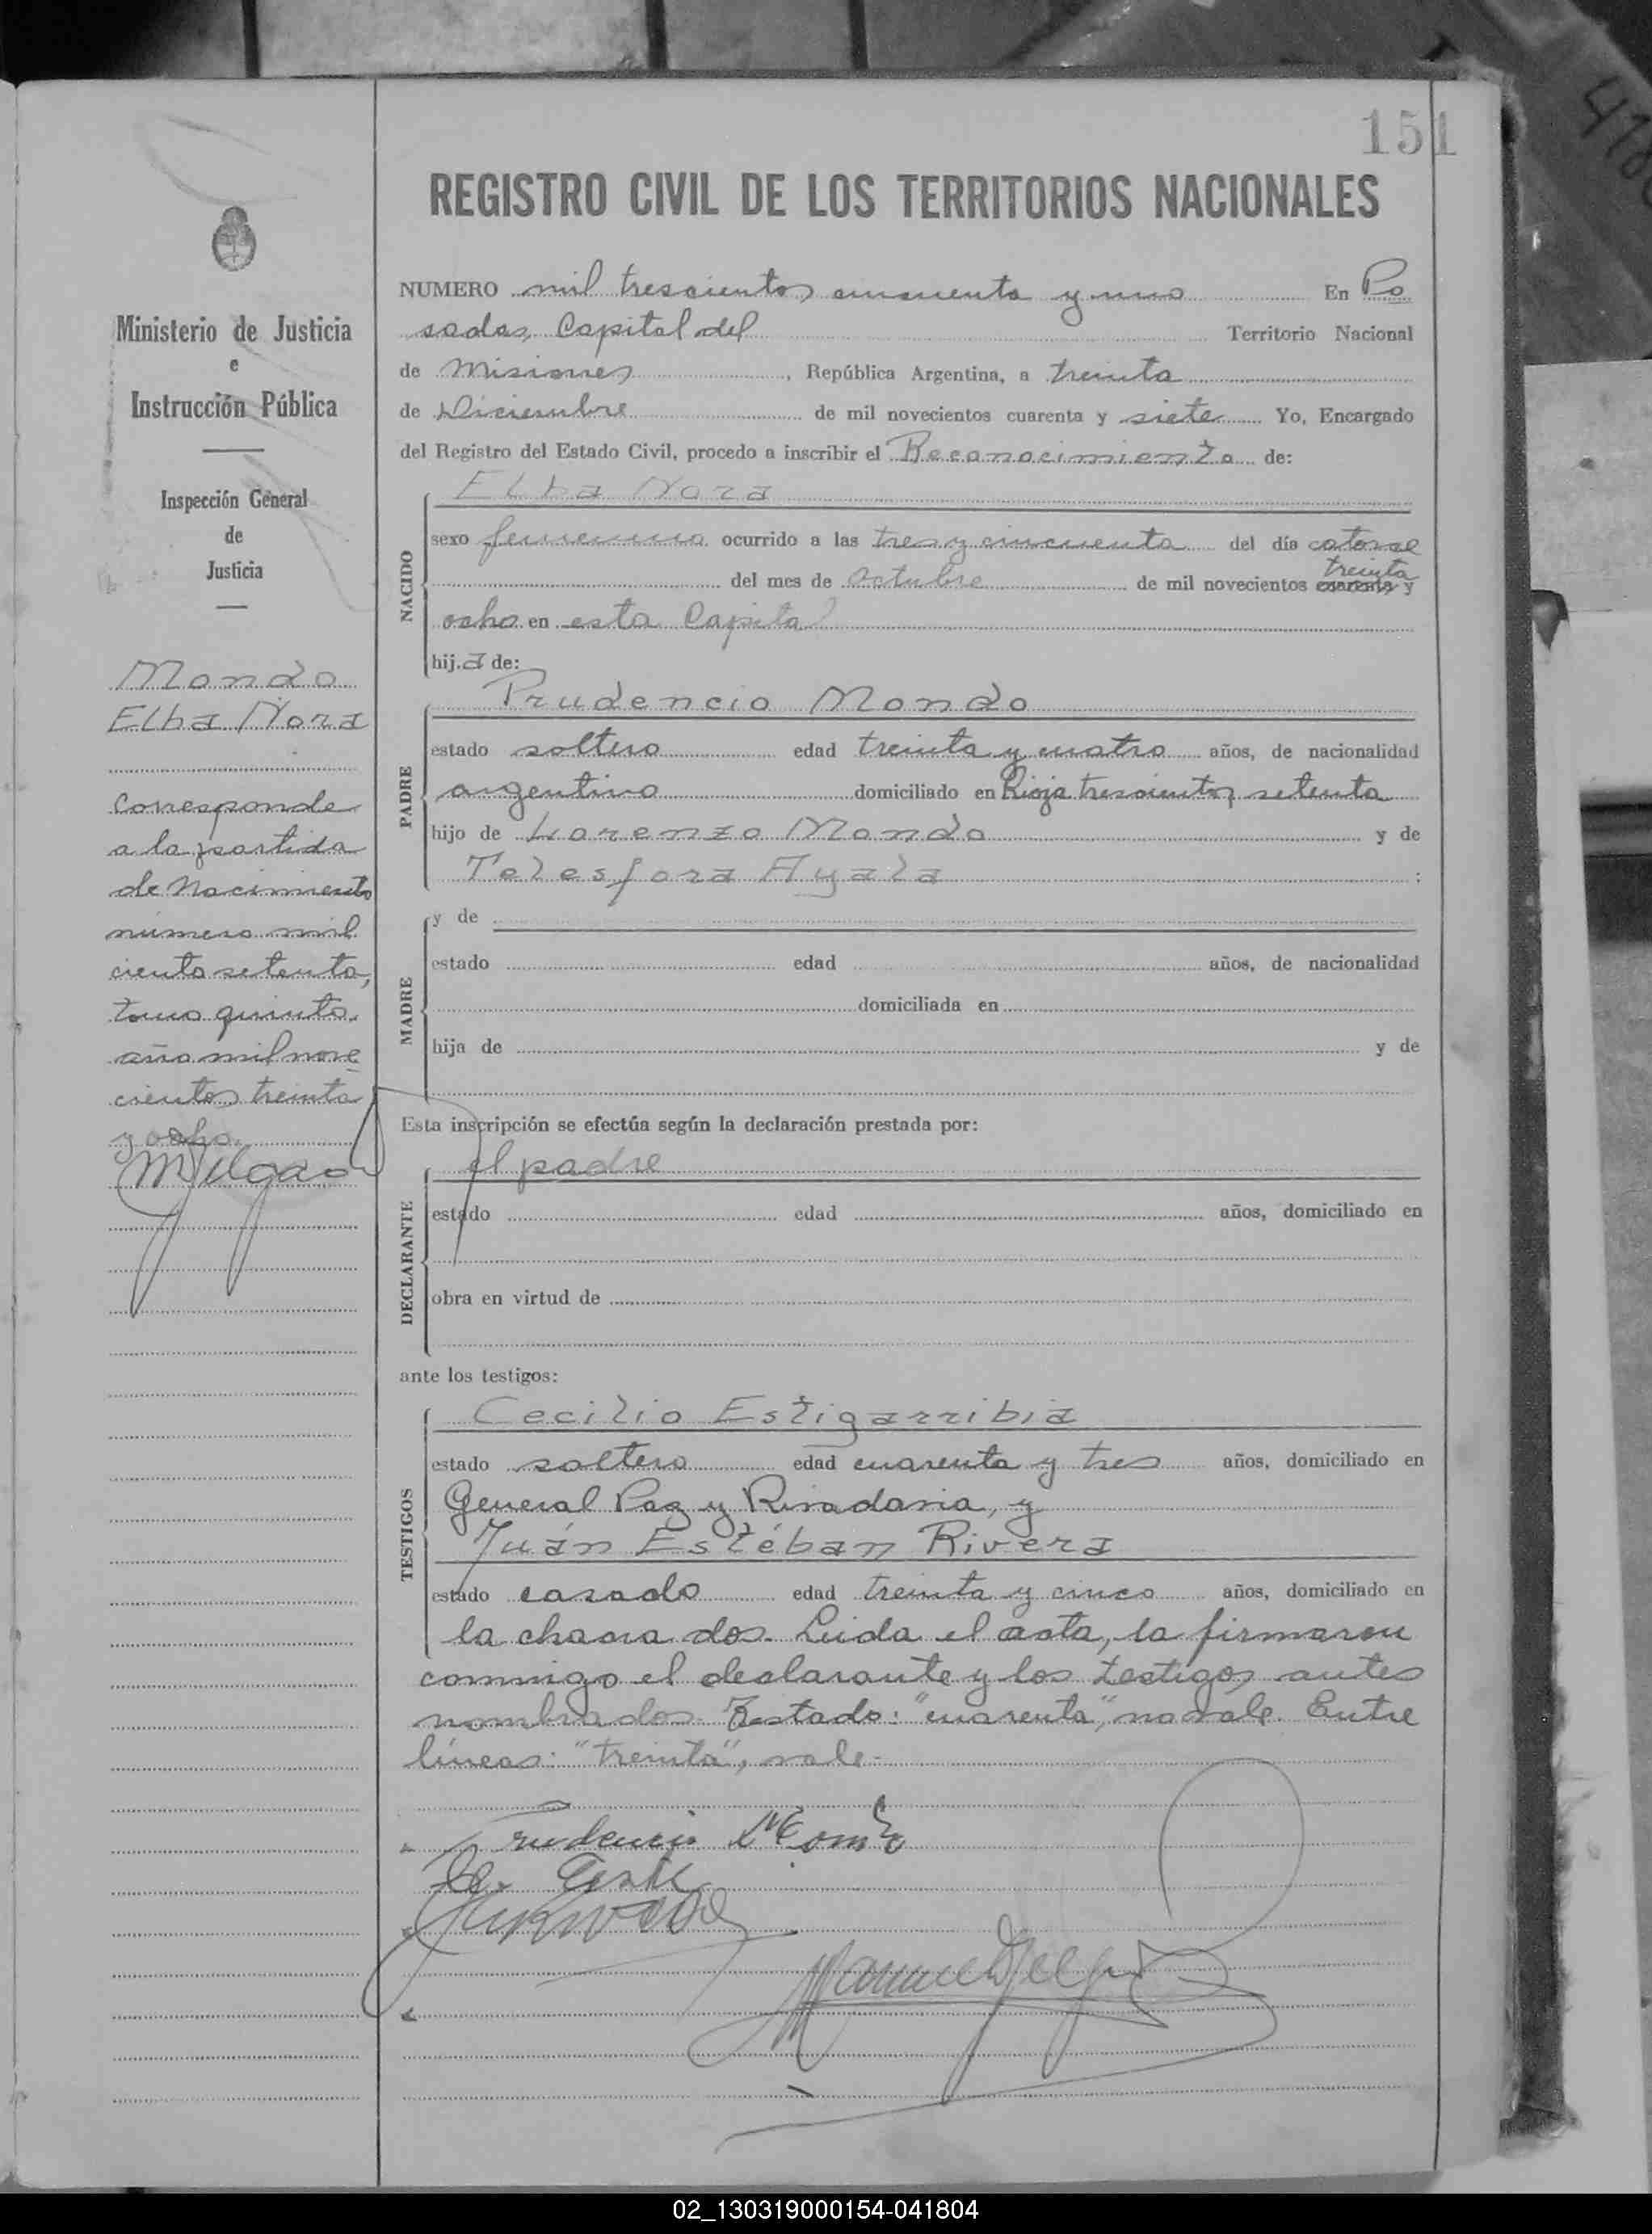 151
REGISTRO CIVIL DE LOS TERRITORIOS NACIONALES
Ministerio de Justicia
e
Instrucción Pública
Inspección General
de
Justicia
Mondo
Elba Nora
Corresponde
a la partida
de Nacimiento
número mil
ciento setenta,
tomo quinto.
año mil nove
cientos treinta
y ocho.
NUMERO mil trescientos cincuenta y uno En Po
sadas, Capital del Territorio Nacional
de Misiones, República Argentina, a treinta
de Diciembre de mil novecientos cuarenta y siete Yo, Encargado
del Registro del Estado Civil, procedo a inscribir el Reconocimiento de:
NACIDO
Elba Nora
sexo femenino ocurrido a las tres y cincuenta del día catorce
treinta
del mes de Octubre de mil novecientos cuarenta y
ocho en esta Capital
hij.a de:
PADRE
Prudencio Mondo
estado soltero edad treinta y cuatro años, de nacionalidad
argentino domiciliado en Rioja trescientos setenta
hijo de Lorenzo Mondo y de
Telesfora Ayala :
MADRE
y de
estado edad años, de nacionalidad
domiciliada en
hija de y de
Esta inscripción se efectúa según la declaración prestada por:
DECLARANTE
el padre
estado edad años, domiciliado en
obra en virtud de
ante los testigos:
TESTIGOS
Cecilio Estigarribia
estado soltero edad cuarenta y tres años, domiciliado en
General Paz y Rivadavia, y
Juán Estéban Rivera
estado casado edad treinta y cinco años, domiciliado en
la chacra dos. Leida el acta, la firmaron
conmigo el declarante y los testigos antes
nombrados. Testado: "cuarenta", no vale. Entre
líneas: "treinta", vale.-
Prudencio Mondo
02_130319000154-041804